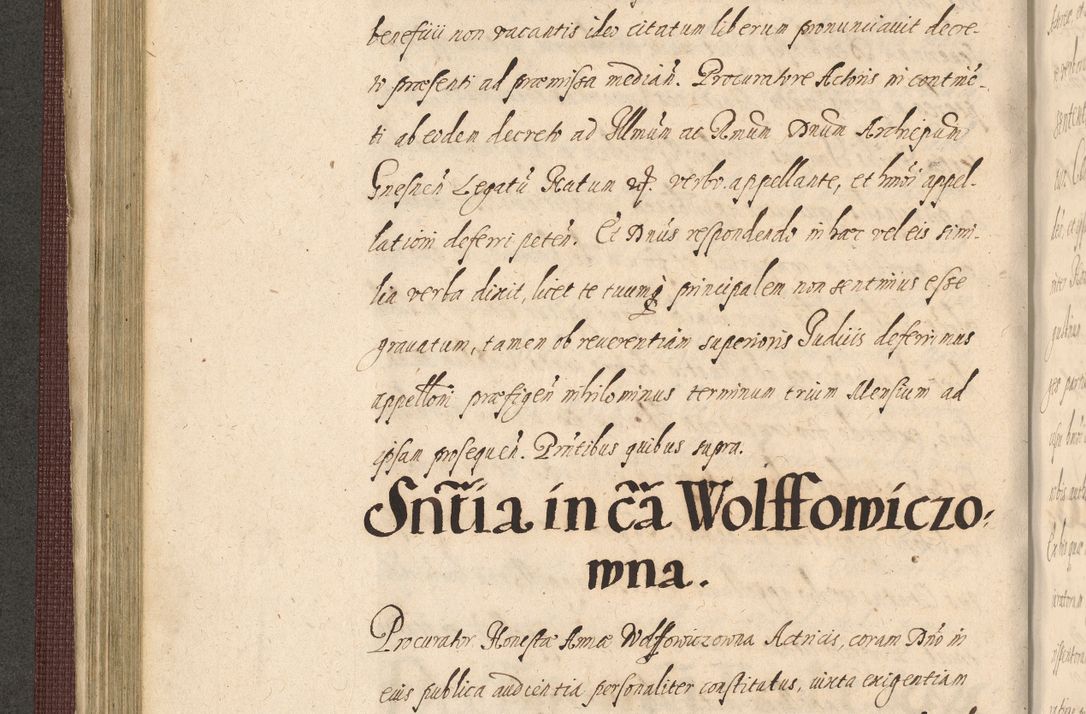 beneficii non vacantis ideo citatum liberum pronunciavit decre-
to præsenti ad præmissa median̄. Procuratore Actoris in continē-
ti ab eodem decreto ad Illmūn ac Rmūm Dnūm Archiepūm
Gnesnen̄ Legatū Natum verbo appellante, et hmōi appel-
lationi deferri peten̄. Et Dnūs respondendo in hæc vel eis simi-
lia verba dixit, licet te tuumq principalem non sentimus esse
gravatum, tamen ob reverentiam superioris Judiciis deferrimus
appellōni præfigen̄ nihilominus terminum trium Mensium ad
ipsam prosequen̄. Prn̄tibus quibus supra.
Sn̄tia in cā̄ Wolffowiczo-
wna.
Procurator Honestæ Annæ Wolffowiczowna Actricis, coram Dn̄o in
eius publica audientia personaliter constitutus, iuxta exigentiam